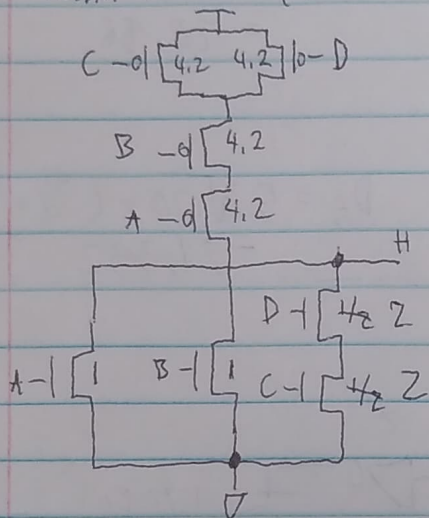 C 4,2 4,2 D
B 4,2
A 4,2
H
D 2
A 1 B 1 C 2